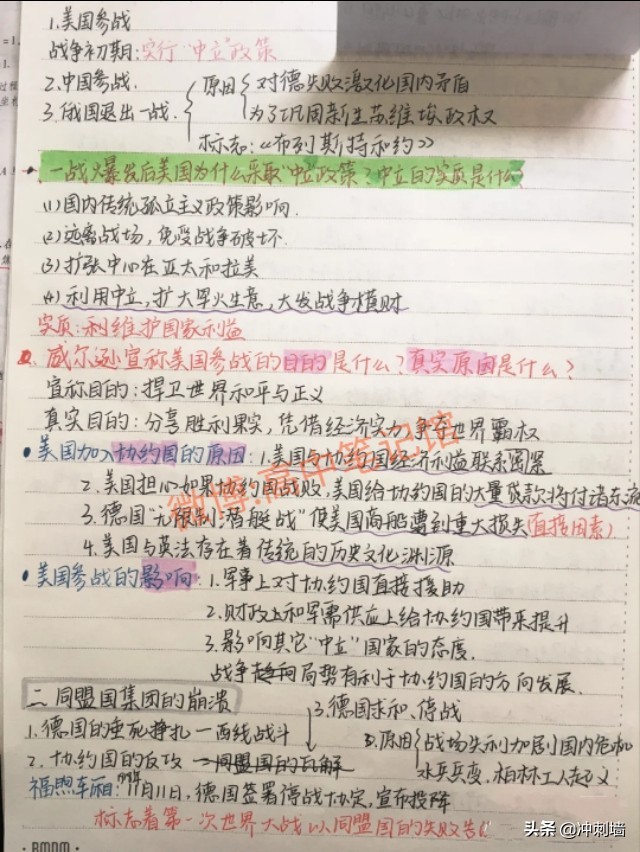 1.美国参战
战争初期:实行“中立”政策
2.中国参战.
3.俄国退出一战. 原因 对德失败激化国内矛盾
为了巩固新生苏维埃政权
标志:《布列斯特和约》
一战爆发后美国为什么采取“中立”政策?中立的实质是什么?
(1)国内传统孤立主义政策影响.
(2)远离战场,免受战争破坏.
(3)扩张中心在亚太和拉美
(4)利用中立,扩大军火生意,大发战争横财
实质:利维护国家利益
威尔逊宣称美国参战的目的是什么?真实原因是什么?
宣称目的:捍卫世界和平与正义
真实目的:分享胜利果实,凭借经济实力,争夺世界霸权
•美国加入协约国的原因:1.美国与协约国经济利益联系密紧
2.美国担心如果协约国战败,美国给协约国的大量贷款将付诸东流
3.德国“无限制潜艇战”使美国商船遭到重大损失(直接因素)
4.美国与英法存在着传统的历史文化渊源
•美国参战的影响:1.军事上对协约国直接援助
2.财政上和军需供应上给协约国带来提升
3.影响其它“中立”国家的态度.
战争趋向局势有利于协约国的方向发展.
二 同盟国集团的崩溃
3.德国求和、停战
1.德国的垂死挣扎—西线战斗
3.原因 战场失利加剧国内危机
2.协约国的反攻 —同盟国的瓦解
水兵兵变,柏林工人起义
福煦车厢:11月11日,德国签署停战协定,宣布投降
标志着第一次世界大战以同盟国的失败告
微博:高中笔记馆
BMDM
头条 @冲刺墙